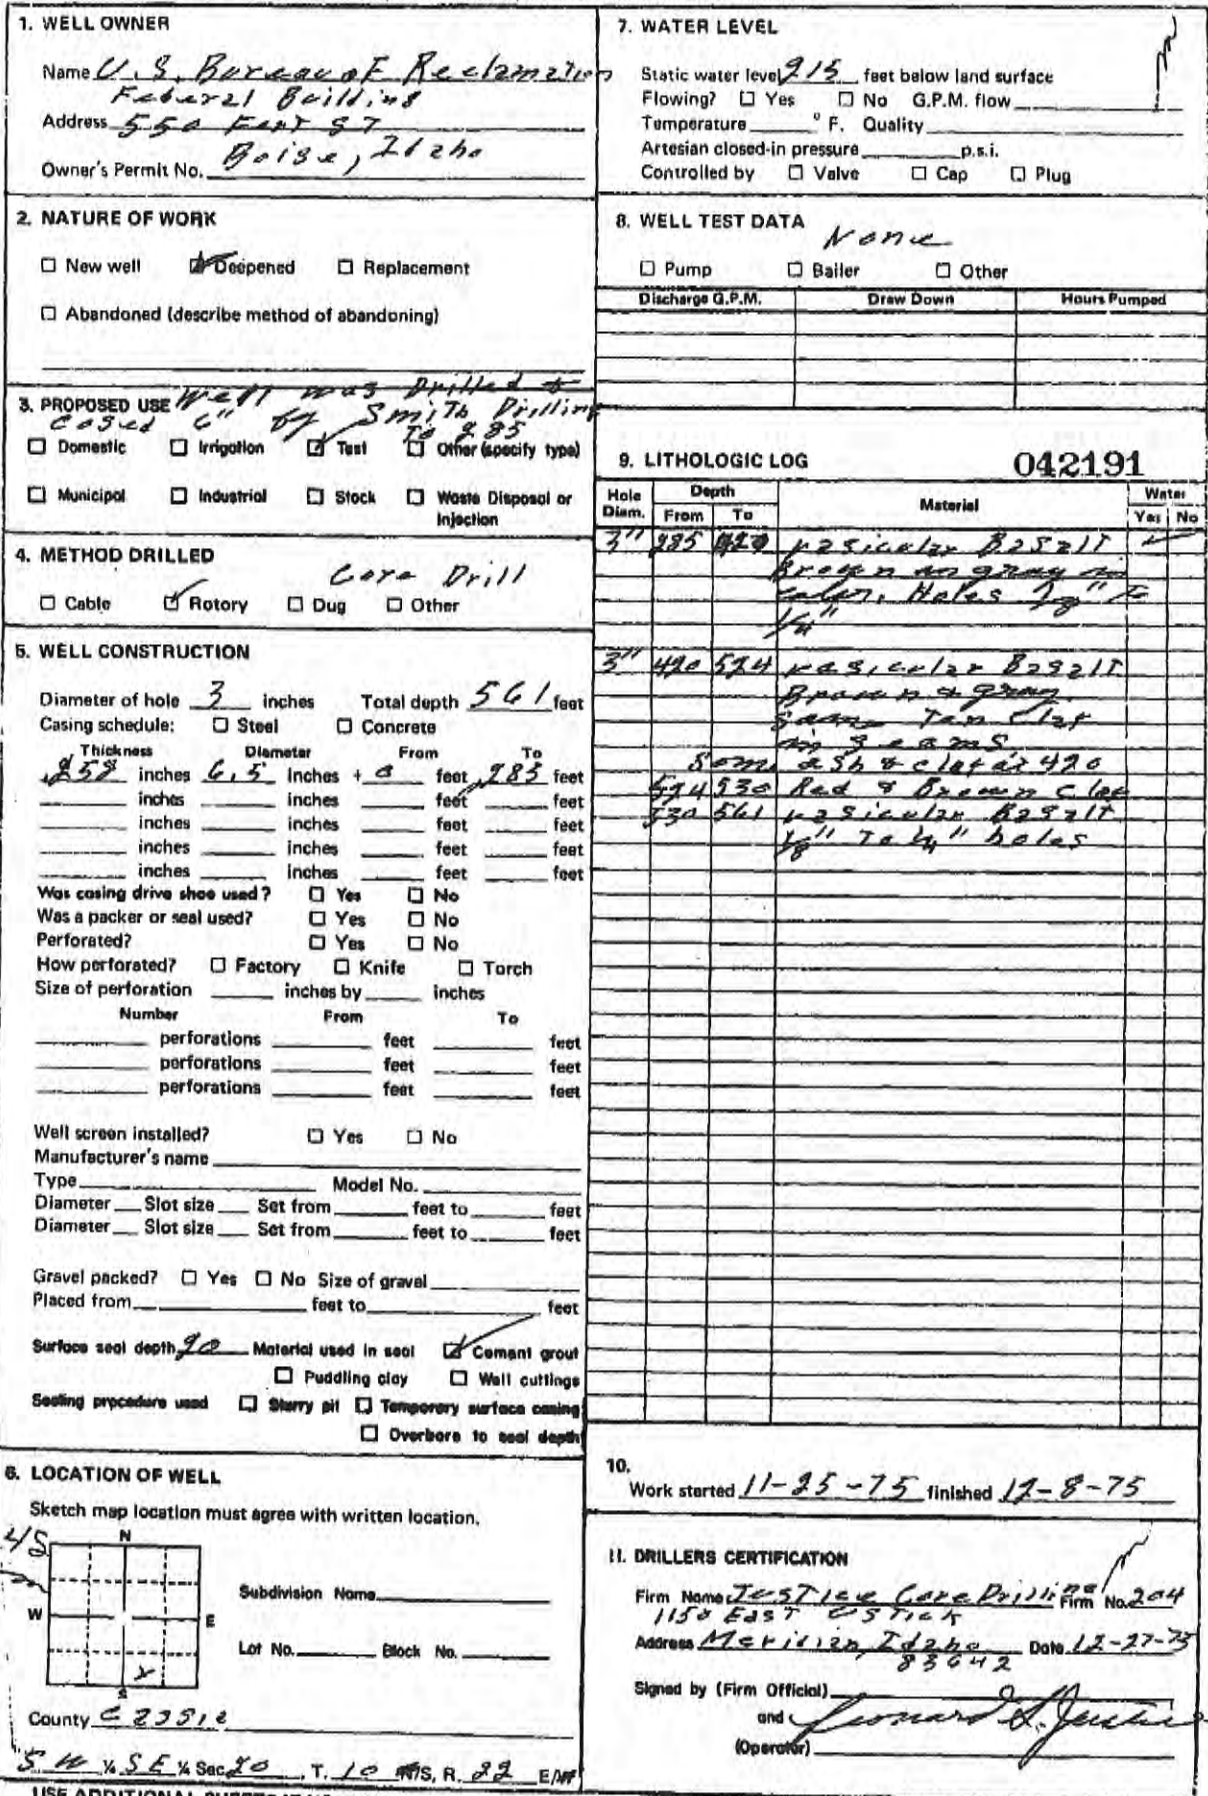 1. WELL OWNER
Name U.S. Bureau of Reclamation
Federal Building
Address 550 Fort ST
Boise, Idaho
Owner's Permit No.
2. NATURE OF WORK
☐ New well ☑ Deepened ☐ Replacement
☐ Abandoned (describe method of abandoning)
Well was Drilled &
3. PROPOSED USE
cased 6" by Smith Drilling
To 285
☐ Domestic ☐ Irrigation ☑ Test ☐ Other (specify type)
☐ Municipal ☐ Industrial ☐ Stock ☐ Waste Disposal or
Injection
4. METHOD DRILLED
Core Drill
☐ Cable ☑ Rotory ☐ Dug ☐ Other
5. WELL CONSTRUCTION
Diameter of hole 3 inches Total depth 561 feet
Casing schedule: ☐ Steel ☐ Concrete
Thickness Diameter From To
.258 inches 6.5 Inches + 0 feet 285 feet
inches inches feet feet
inches inches feet feet
inches inches feet feet
inches inches feet feet
Was casing drive shoe used? ☐ Yes ☐ No
Was a packer or seal used? ☐ Yes ☐ No
Perforated? ☐ Yes ☐ No
How perforated? ☐ Factory ☐ Knife ☐ Torch
Size of perforation inches by inches
Number From To
perforations feet feet
perforations feet feet
perforations feet feet
Well screen installed? ☐ Yes ☐ No
Manufacturer's name
Type Model No.
Diameter Slot size Set from feet to feet
Diameter Slot size Set from feet to feet
Gravel packed? ☐ Yes ☐ No Size of gravel
Placed from feet to feet
Surface seal depth 20 Material used in seal ☑ Cement grout
☐ Puddling clay ☐ Well cuttings
Sealing procedure used ☐ Slurry pit ☐ Temporary surface casing
☐ Overbore to seal depth
6. LOCATION OF WELL
Sketch map location must agree with written location.
N
W E
S
X
Subdivision Name
Lot No. Block No.
County Cassia
SW ¼ SE ¼ Sec. 20, T. 10 N/S, R. 22 E/W
7. WATER LEVEL
Static water level 215 feet below land surface
Flowing? ☐ Yes ☐ No G.P.M. flow
Temperature ° F. Quality
Artesian closed-in pressure p.s.i.
Controlled by ☐ Valve ☐ Cap ☐ Plug
8. WELL TEST DATA
None
☐ Pump ☐ Bailer ☐ Other
Discharge G.P.M. Draw Down Hours Pumped
9. LITHOLOGIC LOG 042191
Hole Diam. Depth Material Water
From To Yes No
3" 285 420 vasicular Basalt ✓
Brown an gray in
color, Holes 1/8" To
1/4"
3" 420 524 vasicular Basalt
Brown & gray
Tan Clay
in seams
Som ash & clay at 420
524 530 Red & Brown Clay
530 561 vasicular Basalt
1/8" To 1/4" holes
10.
Work started 11-25-75 finished 12-8-75
11. DRILLERS CERTIFICATION
Firm Name Justice Core Drilling Firm No. 204
1150 East Ustick
Address Meridian, Idaho Date 12-27-75
83642
Signed by (Firm Official)
and Leonard L. Justice
(Operator)